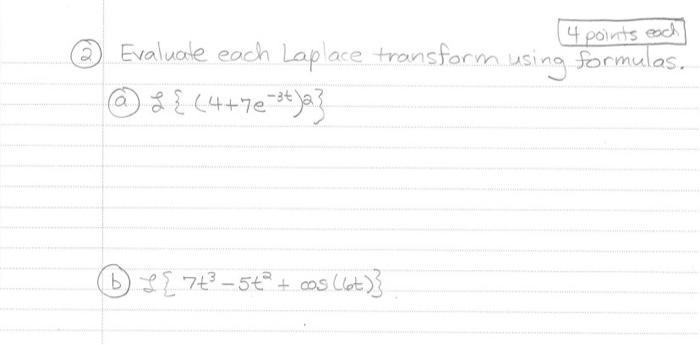 4 points each
② Evaluate each Laplace transform using formulas.
ⓐ ℒ{(4+7e⁻³ᵗ)²}
ⓑ ℒ{7t³ – 5t² + cos(6t)}